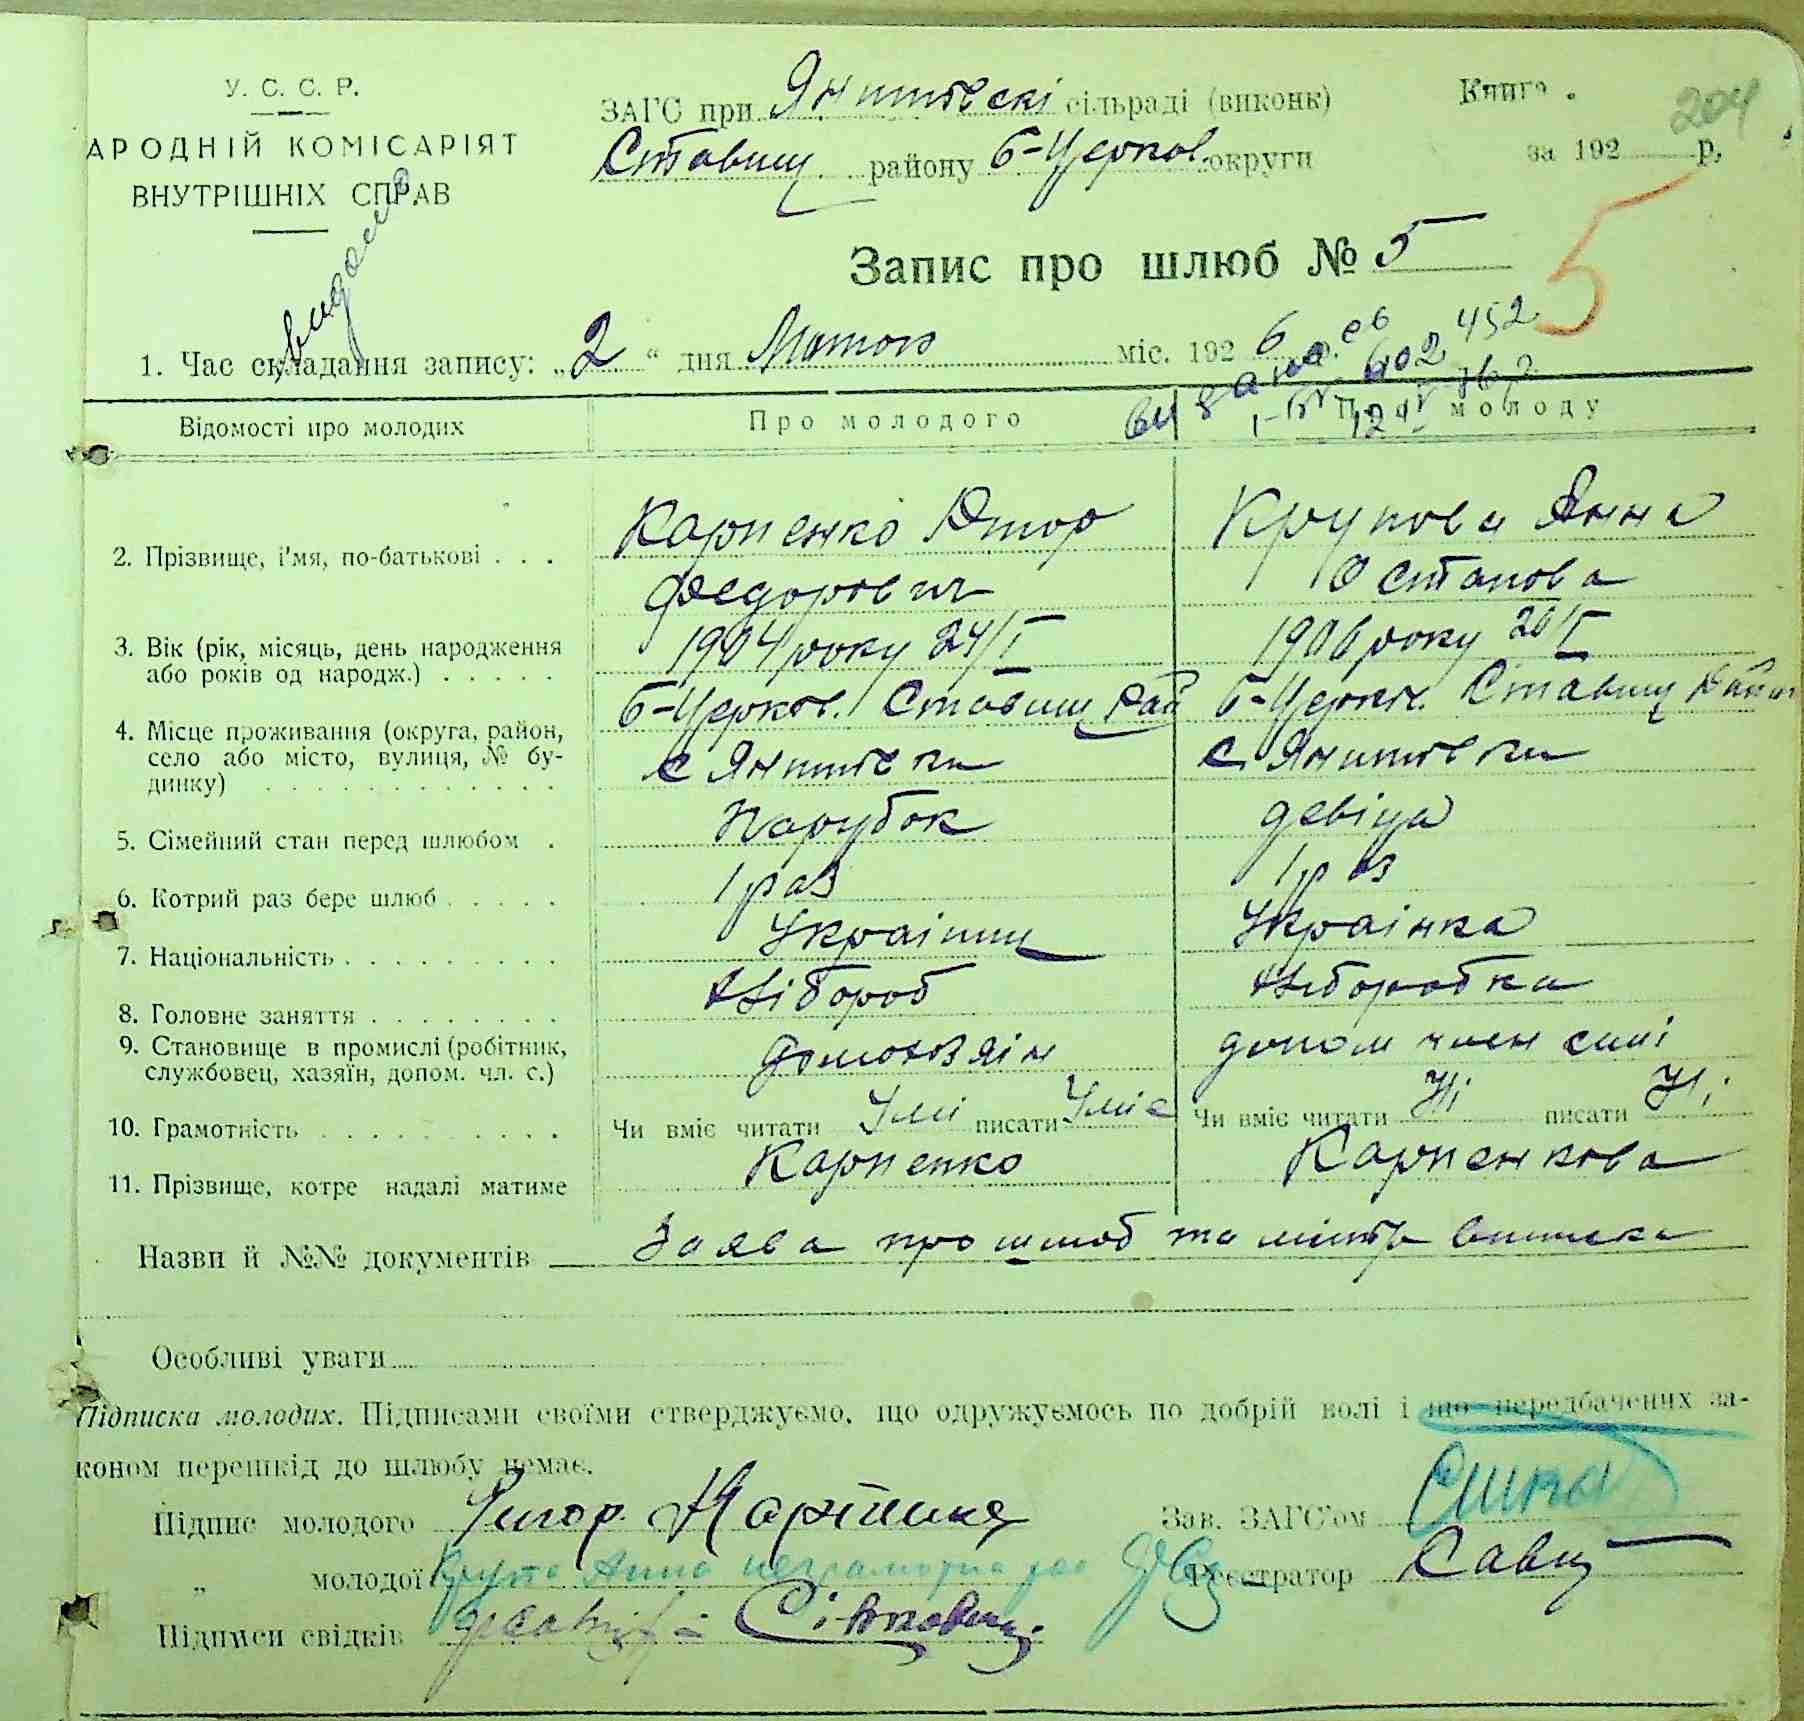 У. С. С. Р.
АРОДНІЙ КОМІСАРІЯТ
ВНУТРІШНІХ СПРАВ
ЗАГС при Янишівскі сільраді (виконк)
Ставищ. району Б-Церков. округи
Книга
204
за 192 р.
видано
Запис про шлюб № 5
5
1. Час складання запису: „2“ дня Лютого міс. 1926
видана
602 452
Відомості про молодих
Про молодого
Про молоду
2. Прізвище, і'мя, по-батькові . . .
Карпенко Ягор
Федорович
Крупова Янна
Остапова
3. Вік (рік, місяць, день народження
або років од народж.) . . . . .
1904 року 24/I
1906 року 20/I
4. Місце проживання (округа, район,
село або місто, вулиця, № бу-
динку) . . . . . . . . . . . .
Б-Церков. Ставищ Рай
с Янишівки
Б-Церків. Ставищ Район
с Янишівки
5. Сімейний стан перед шлюбом .
парубок
девіца
6. Котрий раз бере шлюб . . . . .
1 раз
1 раз
7. Національність . . . . . . . . .
Украінец
Украінка
8. Головне заняття . . . . . . . .
хлібороб
хліборобка
9. Становище в промислі (робітник,
службовец, хазяїн, допом. чл. с.)
домохозяін
допом член сімі
10. Грамотність . . . . . . . . . .
Чи вміє читати Умі писати Уміє
Чи вміє читати Ні писати Ні
11. Прізвище, котре надалі матиме
Карпенко
Карпенкова
Назви й №№ документів Заява про шлюб та метр виписка
Особливі уваги
Підписка молодих. Підписами своїми стверджуємо, що одружуємось по добрій волі і що передбачених за-
коном перешкід до шлюбу немає.
Підпис молодого
Зав. ЗАГС'ом
„ молодої Крупа Анна неграмотна
Реєстратор Савиц
Підписи свідків